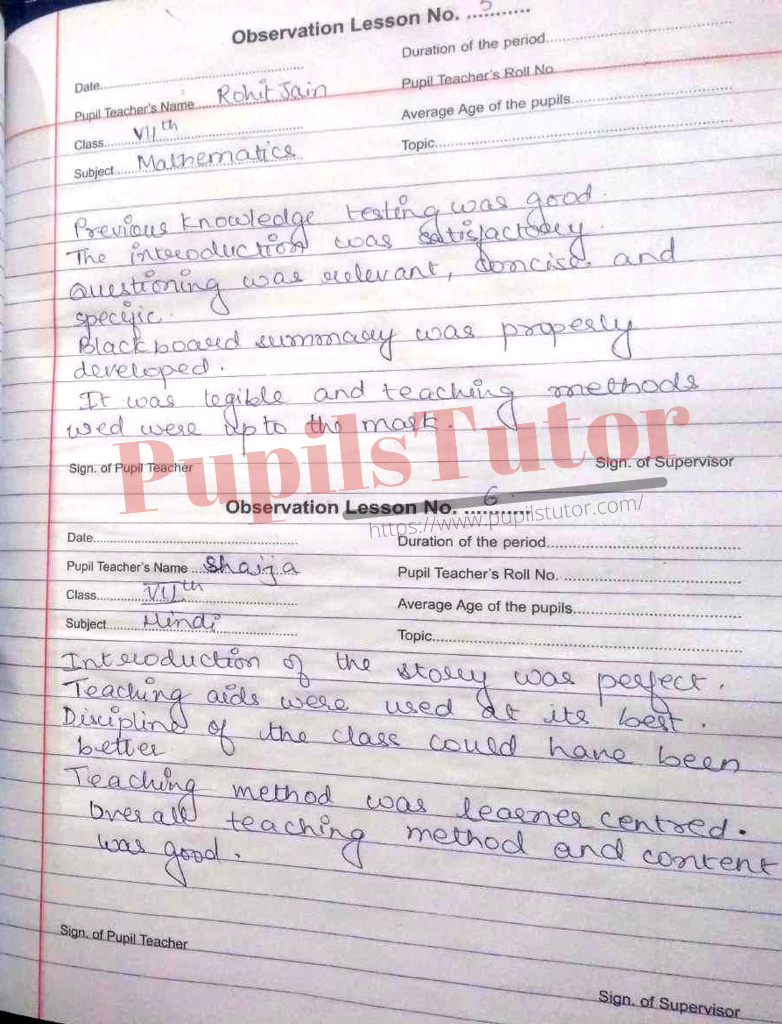 Observation Lesson No. ....5.......
Date..............................
Duration of the period..............................
Pupil Teacher's Name ..... Rohit Jain
Pupil Teacher's Roll No..............................
Class..... VIIth
Average Age of the pupils..............................
Subject..... Mathematics
Topic..............................
Previous knowledge testing was good.
The introduction was satisfactory.
Questioning was relevant, concise and
specific.
Blackboard summary was properly
developed.
It was legible and teaching methods
used were upto the mark.
PupilsTutor
Sign. of Pupil Teacher
Sign. of Supervisor
Observation Lesson No. ....6.......
https://www.pupilstutor.com/
Date..............................
Duration of the period..............................
Pupil Teacher's Name ... Shaija
Pupil Teacher's Roll No. ..............................
Class..... VIIth
Average Age of the pupils..............................
Subject..... Hindi
Topic..............................
Introduction of the story was perfect.
Teaching aids were used at its best.
Discipline of the class could have been
better
Teaching method was learner centred.
Over all teaching method and content
was good.
Sign. of Pupil Teacher
Sign. of Supervisor